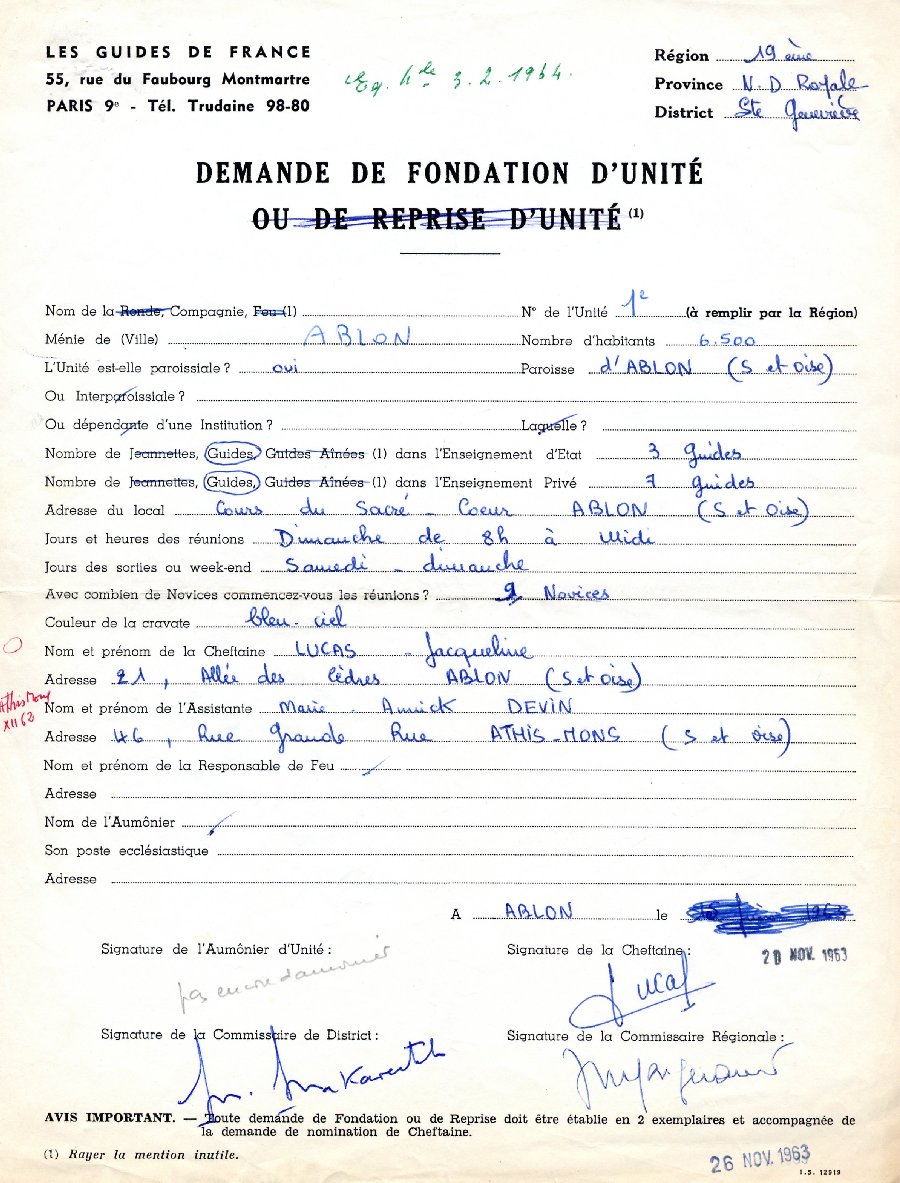 LES GUIDES DE FRANCE
55, rue du Faubourg Montmartre
PARIS 9e - Tél. Trudaine 98-80
3.2.1964.
Région 19ème
Province N.D Royale
District Ste Geneviève
DEMANDE DE FONDATION D'UNITÉ
OU DE REPRISE D'UNITÉ (1)
Nom de la Ronde, Compagnie, Feu (1) N° de l'Unité 1e (à remplir par la Région)
Ménie de (Ville) ABLON Nombre d'habitants 6.500
L'Unité est-elle paroissiale ? oui Paroisse d'ABLON (S et Oise)
Ou Interparoissiale ?
Ou dépendante d'une Institution ? Laquelle ?
Nombre de Jeannettes, Guides, Guides Aînées (1) dans l'Enseignement d'Etat 3 guides
Nombre de Jeannettes, Guides, Guides Aînées (1) dans l'Enseignement Privé 7 guides
Adresse du local Cours du Sacré-Coeur ABLON (S et Oise)
Jours et heures des réunions Dimanche de 8h à Midi
Jours des sorties ou week-end Samedi - dimanche
Avec combien de Novices commencez-vous les réunions ? 9 Novices
Couleur de la cravate bleu-ciel
Nom et prénom de la Cheftaine LUCAS - Jacqueline
Adresse 21, Allée des Cèdres ABLON (S et Oise)
Athis Mons
XII 62
Nom et prénom de l'Assistante Marie-Annick DEVIN
Adresse 46, Rue Grande Rue ATHIS-MONS (S et Oise)
Nom et prénom de la Responsable de Feu
Adresse
Nom de l'Aumônier
Son poste ecclésiastique
Adresse
A ABLON le 1963
20 NOV. 1963
Signature de l'Aumônier d'Unité :
pas encore d'aumônier
Signature de la Cheftaine :
Lucas
Signature de la Commissaire de District :
Signature de la Commissaire Régionale :
AVIS IMPORTANT. — Toute demande de Fondation ou de Reprise doit être établie en 2 exemplaires et accompagnée de
la demande de nomination de Cheftaine.
(1) Rayer la mention inutile.
26 NOV. 1963
I.S. 12919